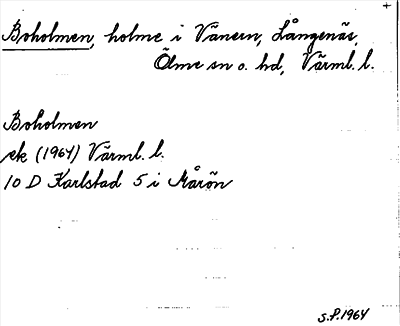 +
Boholmen, holme i Vänern, Långenäs,
Ölme sn o. hd, Värml. l.
Boholmen
ek (1964) Värml. l.
10 D Karlstad 5 i Mårön
S.P. 1964